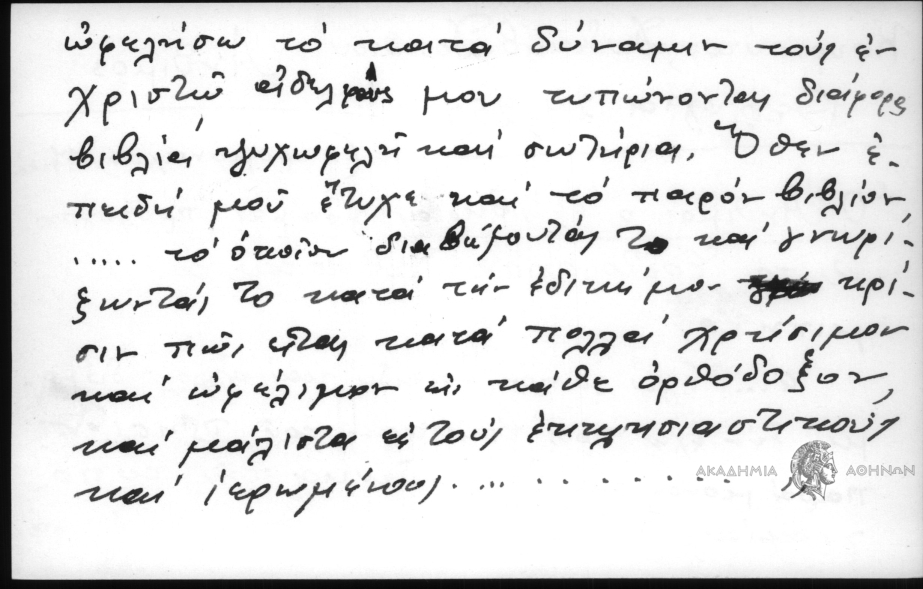 ὠφελήσω τό κατά δύναμιν τούς ἐν
χριστῶ ἀδελφούς μου τυπώνονται διάφορα
βιβλία ψυχωφελῆ καί σωτήρια. Ὅθεν ἐ-
πειδή μοῦ ἔτυχε καί τό παρόν βιβλίον
..... τό ὁποῖον διαβάζοντάς το καί γνωρί-
ζωντάς το κατά τήν ἐδικήμου κρί-
σιν πῶς εἶται κατά πολλά χρήσιμον
καί ὠφέλιμον εἰς κάθε ὀρθόδοξον,
καί μάλιστα εἰς τούς ἐκκλησιαστικούς
καί ἱερωμένους..............
ΑΚΑΔΗΜΙΑ ΑΘΗΝΩΝ